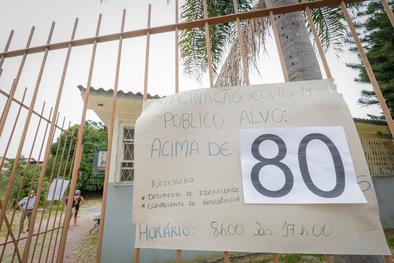 VACINAÇÃO COVID-19
PÚBLICO ALVO:
ACIMA DE 80
NECESSÁRIO
* DOCUMENTO DE IDENTIDADE
* COMPROVANTE DE RESIDÊNCIA
HORÁRIO: 8h00 ÀS 17h00